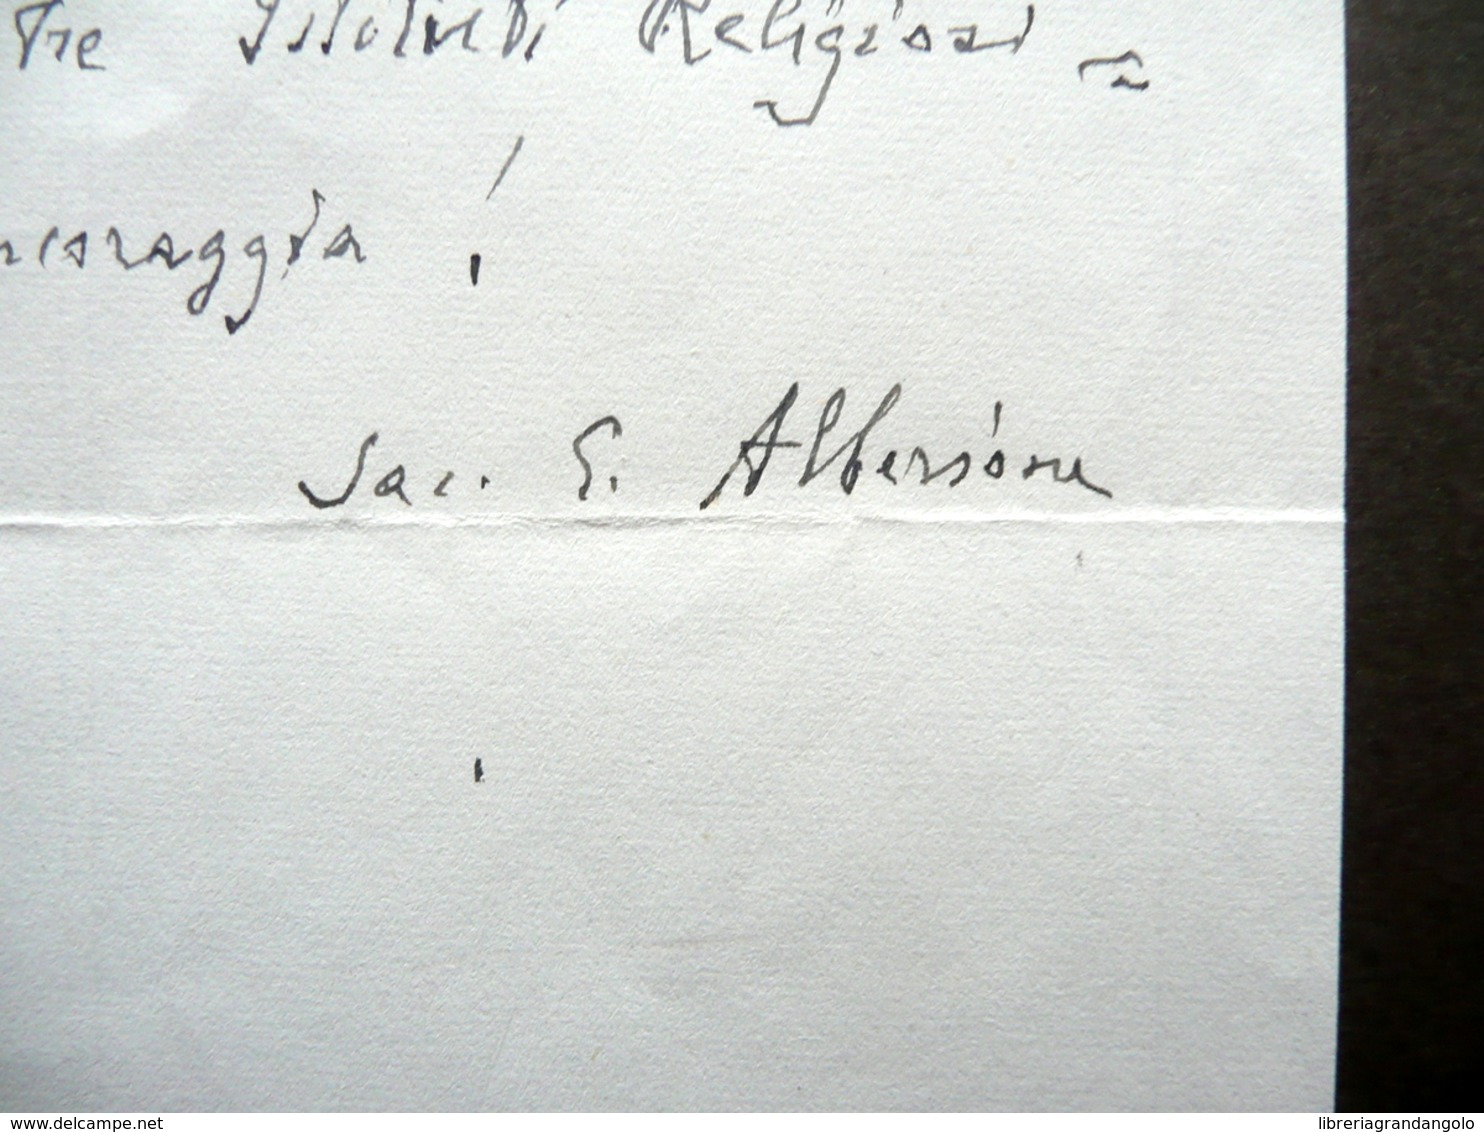 tre Istituti Religiosi -
ncoraggia !
Sac. G. Alberione
www.delcampe.net
libreriagrandangolo